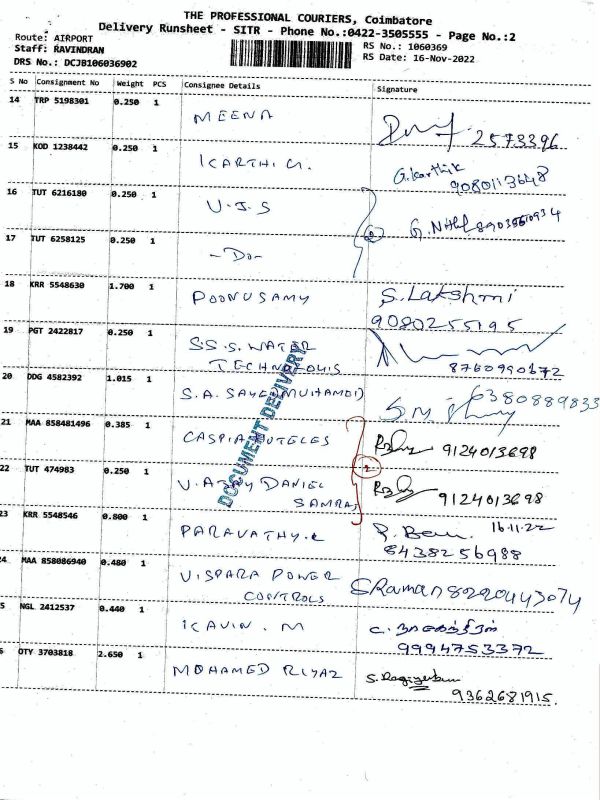 THE PROFESSIONAL COURIERS, Coimbatore
Delivery Runsheet - SITR - Phone No.:0422-3505555 - Page No.:2
Route: AIRPORT
Staff: RAVINDRAN
DRS No.: DCJB106036902
RS No.: 1060369
RS Date: 16-Nov-2022
S No Consignment No Weight PCS Consignee Details Signature
14 TRP 5198301 0.250 1 MEENA 2573396
15 KOD 1238442 0.250 1 KARTHI G. G. Karthik
9080113648
16 TUT 6216180 0.250 1 U.J.S
17 TUT 6258125 0.250 1 -Do-
18 KRR 5548630 1.700 1 POONUSAMY S. Lakshmi
9080255195
19 PGT 2422817 0.250 1 SS.S. WATER
TECHNOLOUIS 8760990172
20 DDG 4582392 1.015 1 S.A. SAYEDMUHAMDD 6380889833
DOCUMENT DELIVERY
21 MAA 858481496 0.385 1 CASPIA HOTELES 9124013698
22 TUT 474983 0.250 1 V. AJAY DANIEL
SAMRAJ 9124013698
23 KRR 5548546 0.800 1 PARAVATHY.R 16.11.22
8438256988
24 MAA 858086940 0.480 1 VISPARA POWER
CONTROLS S Raman 8220443074
5 NGL 2412537 0.440 1 KAVIN. M
9994753372
6 OTY 3703818 2.650 1 MOHAMED RIYAZ
9362681915.